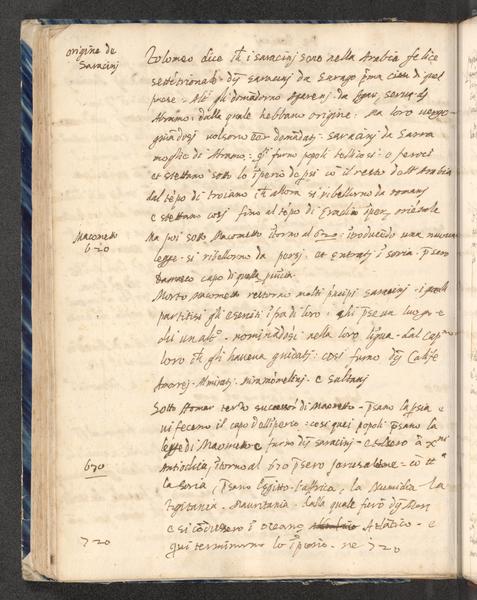 origine de
Saracinj
Tolomeo dice ch i saracinj sono nella Arabia felice
settetrionale. dj saracinj da Sarago pma citta di quel
paese. Altri gli domadorno Agarenj da Agar, serva di
Abramo: dalla quale hebbano origine: Ma loro vergo
gnadosi volsono esser domadatj. saracinj da Sarra
moglie di Abramo: furno popoli bellicosi. e feroci
et stettano sotto lo iperio de psi co il resto dell Arabia
dal tepo di troiano ch allora si ribellorno da romanj
e stettano cosi fino al tepo di Eraclio iper. orietale
Macometto
620
Ma poi sotto Macometto itorno al 620: itroducedo una nuova
legge. si ribellorno da persj. et entratj i soria. psero
Damasco capo di quella pvicia.
Morto Macometto restorno molti pncipi saracinj. i quali
partitisi gli eserciti fra di loro. chi pse un luogo e
chi un altro. nominadosi nella loro ligua. dal cap
loro ch gli haveva guidatj: cosi furno dj Califfe
Almiratj. Miramomelinj. e sultanj
Sotto Homar terzo successor di Maometto. psano la psia e
vi feceno il capo dell iperio: cosi quei popoli psano la
legge di Maometto e furno dj saracinj. e tolsero a
670
Antiochia, itorno al 670 psero Jerusaleme. co tt
la Soria, psano l egitto l affrica, la Numidia. la
Mauritania. dalla quale furo dj Mori
e si codussero i oceano Atlatico. e
720
qui terminorno lo iperio. ne 720